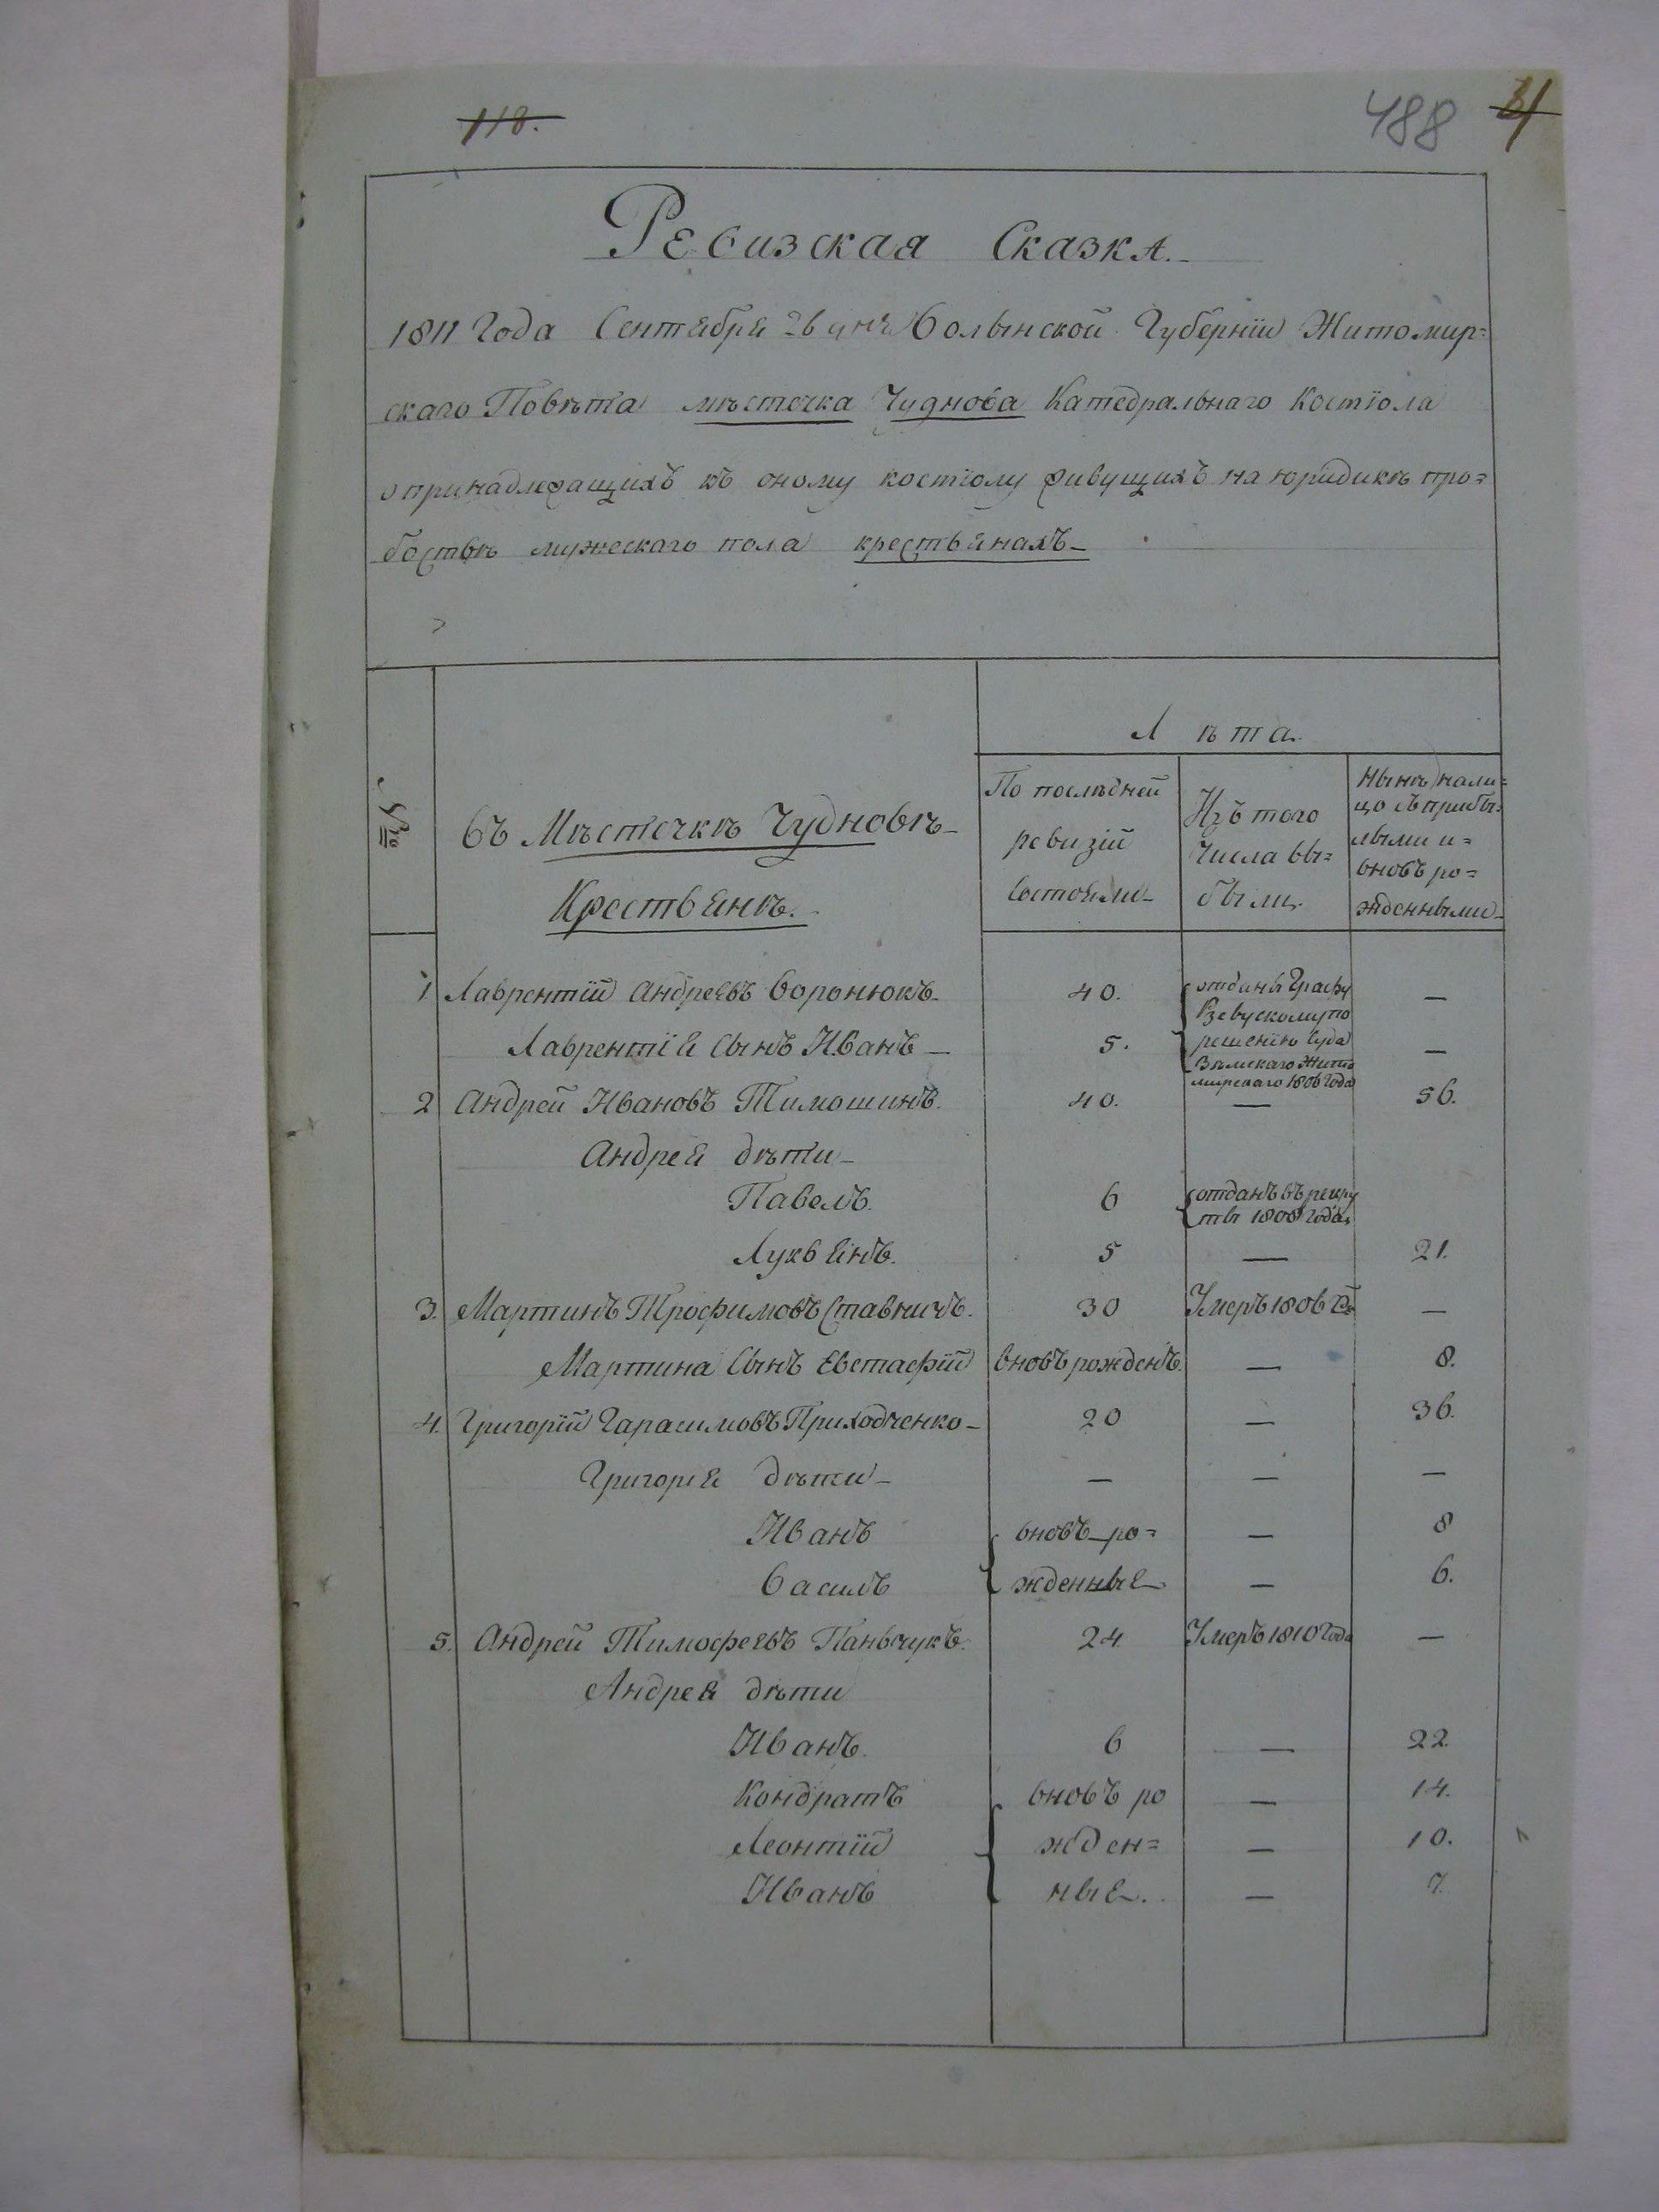 118.
488 31
Ревизская Сказка.
1811 Года Сентября 26 дня Волынской Губернїи Житомир=
скаго Повѣта мѣстечка Чуднова Катедральнаго Костїола
о принадлежащихъ къ оному костїолу живущихъ на юридикѣ про=
боствѣ мужескаго пола крестьянахъ
Лѣта.
№
Въ Мѣстечкѣ Чудновѣ
Крестьянѣ.
По послѣдней
ревизїи
состояли
Изъ того
числа вы=
были
Нынѣ нали=
цо съ прибы=
лыми и=
вновь ро=
жденными
1 Лаврентїй Андреевъ Воронюкъ 40. отданы Графу —
Ржевускому по
Лаврентїя Сынъ Иванъ 5. решенїю Суда —
Земскаго Жито
мирскаго 1806 года
2 Андрей Ивановъ Тимошинъ. 40. — 56.
Андрея дѣти
Павелъ. 6 отданъ въ рекру
ты 1808 года
Лукьянъ. 5 — 21.
3. Мартинъ Трофимовъ Ставничъ. 30 Умеръ 1806 Го —
Мартина Сынъ Евстафїй вновь рожденъ — 8.
4. Григорїй Гарасимовъ Приходченко 20 — 36.
Григорїя дѣти — — —
Иванъ вновь ро= — 8
Василь жденные — 6.
5. Андрей Тимофеевъ Паньчукъ. 24. Умеръ 1810 Года —
Андрея дѣти
Иванъ. 6 — 22.
Кондратъ вновь ро — 14.
Леонтїй жден= — 10.
Иванъ ные. — 7.